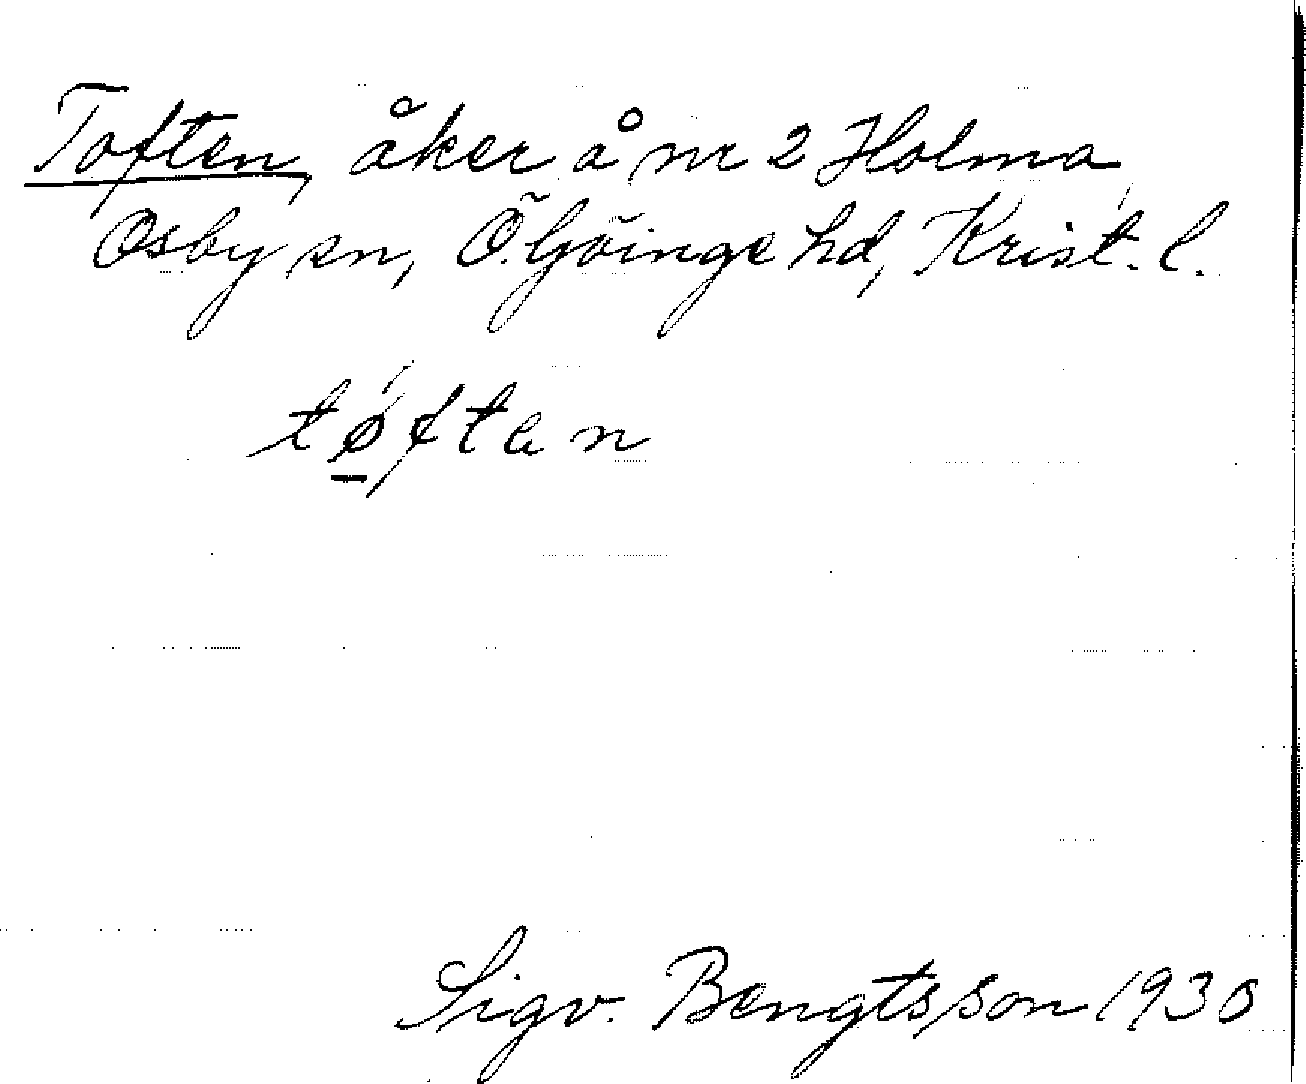 Toften, åker å nr 2 Holma,
Osby sn, Ö. Göinge hd, Krist. l.
tǿ̱ftan
Sigv. Bengtsson 1930